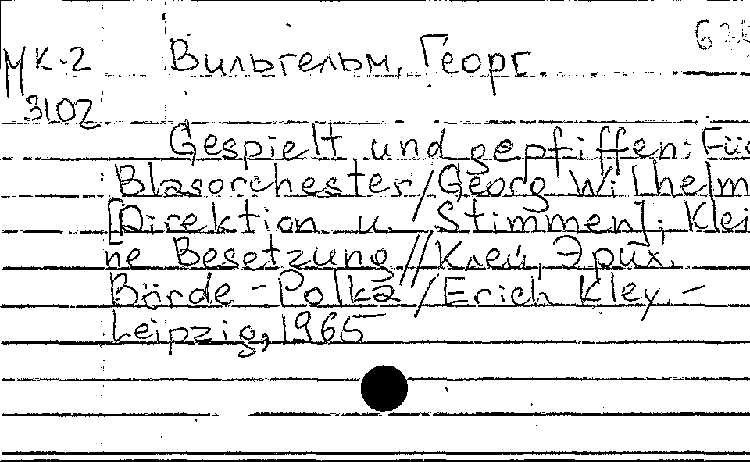 МК-2 Вильгельм, Георг.
3102
Gespielt und gepfiffen: Für
Blasorchester/Georg Wilhelm
[Direktion u. Stimmen]; Klei
ne Besetzung//Клей, Эрих.
Börde-Polka/Erich Kley.-
Leipzig, 1965